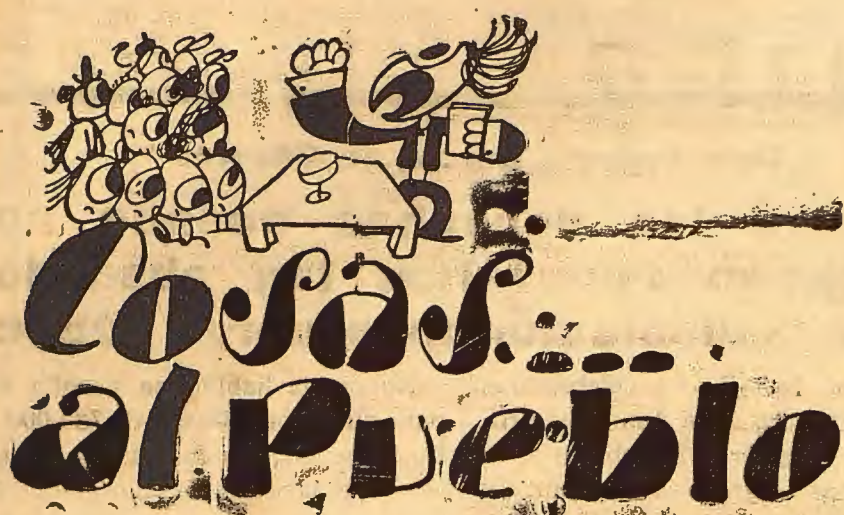 Cosas...
al Pueblo